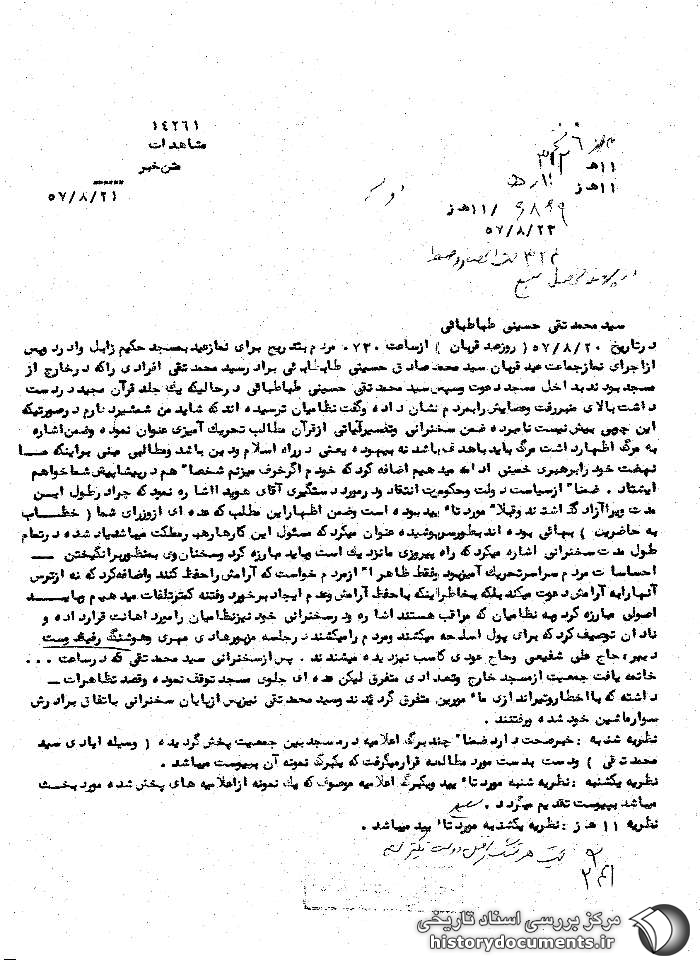 ۱٤۲٦۱
مشاهدات
متن خبر
۵۷/۸/۲۱
۳۱۲
۱۱هـ
۱۱هـ ز
۹۸۹۹ /۱۱هـ ز
۵۷/۸/۲۳
سید محمد تقی حسینی طباطبائی
در تاریخ ۵۷/۸/۲۰ ( روز عید قربان ) از ساعت ۰۷۳۰ مردم بتدریج برای نماز عید بمسجد حکیم زابل وارد و پس
از اجرای نماز جماعت عید قربان سید محمد صادق حسینی طباطبائی برادر سید محمد تقی افرادی را که در خارج از
مسجد بودند بداخل مسجد دعوت و سپس سید محمد تقی حسینی طباطبائی در حالیکه یک جلد قرآن مجید در دست
داشت بالای منبر رفت و عصایش را بمردم نشان داده و گفت نظامیان ترسیده اند که شاید من شمشیر دارم در صورتیکه
این چوبی بیش نیست نامبرده ضمن سخنرانی و تفسیر آیاتی از قرآن مطالب تحریک آمیزی عنوان نموده و ضمن اشاره
به مرگ اظهار داشت مرگ باید با هدف باشد نه بیهوده یعنی در راه اسلام و دین باشد و مطالبی مبنی بر اینکه مـا
نهضت خود را برهبری خمینی ادامه میدهیم اضافه کرد که خود م اگر حرف میزنم شخصاً هم در پیشاپیش شما خواهم
ایستاد . ضمناً از سیاست دولت و حکومت انتقاد و در مورد دستگیری آقای هویدا اشاره نمود که چرا در طول ایـن
مدت ویرا آزاد گذاشتند و قبلاً مورد تأیید بوده است و ضمن اظهار این مطلب که عده ای از وزرای شما ( خطـاب
به حاضرین ) بهائی بوده اند بطور سرپوشیده عنوان میکرد که مسئول این کارها رهبر مملکت میباشد یاد شده در تمام
طول مدت سخنرانی اشاره میکرد که راه پیروزی ما نزدیک است و باید مبارزه کرد و سخنان وی بمنظور برانگیختن ــ
احساسات مردم سراسر تحریک آمیز بود و فقط ظاهراً از مردم خواست که آرامش را حفظ کنند و اضافه کرد که نه از ترس
آنها را به آرامش دعوت میکند بلکه بخاطر اینکه با حفظ آرامش و عدم ایجاد برخورد و فتنه کمتر تلفات میدهیم و بایــد
اصولی مبارزه کرد و به نظامیان که مراقب هستند اشاره و در سخنرانی خود نیز نظامیان را مورد اهانت قرار داده و
نادان توصیف کرد که برای پول اسلحه میکشند و مردم را میکشند در جلسه مزبور هادی مهری و هوشنگ رفیقدوست
دبیر، حاج علی شفیعی و حاج عودی کاسب نیز دیده میشدند . پس از سخنرانی سید محمد تقی که در ساعت ۰۰۰
خاتمه یافت جمعیت از مسجد خارج و تعدادی متفرق لیکن عده ای جلوی مسجد توقف نموده و قصد تظاهرات ــ
داشته که با اخطار و تیراندازی مأمورین متفرق گردیدند و سید محمد تقی نیز پس از پایان سخنرانی باتفاق برادرش
سوار ماشین خود شده و رفتند .
نظریه شنبه : خبر صحت دارد ضمناً چند برگ اعلامیه در مسجد بین جمعیت پخش گردیده ( وسیله ایادی سید
محمد تقی ) و دست بدست مورد مطالعه قرار میگرفت که یکبرگ نمونه آن به پیوست میباشد .
نظریه یکشنبه : نظریه شنبه مورد تأیید و یکبرگ اعلامیه موصوف که یک نمونه از اعلامیه های پخش شده مورد بحث
میباشد بپیوست تقدیم میگردد .
نظریه ۱۱ هـ ز : نظریه یکشنبه مورد تأیید میباشد .
مرکز بررسی اسناد تاریخی
historydocuments.ir